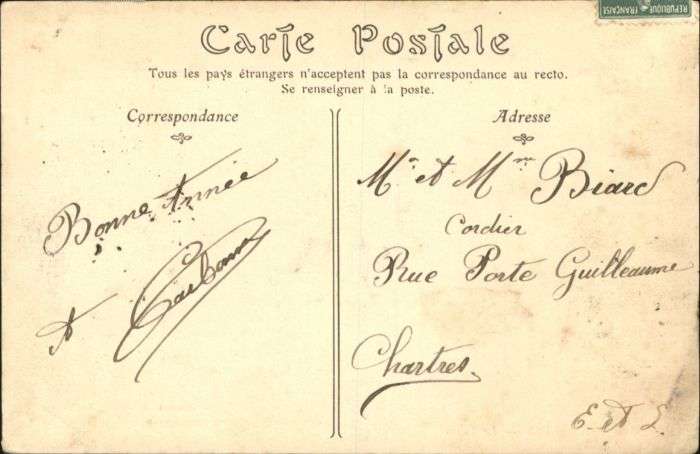 RÉPUBLIQUE FRANÇAISE
Carte Postale
Tous les pays étrangers n'acceptent pas la correspondance au recto.
Se renseigner à la poste.
Correspondance
Bonne Année
A
Adresse
Mr et Mme Biard
Cordier
Rue Porte Guilleaume
Chartres
E. et L.